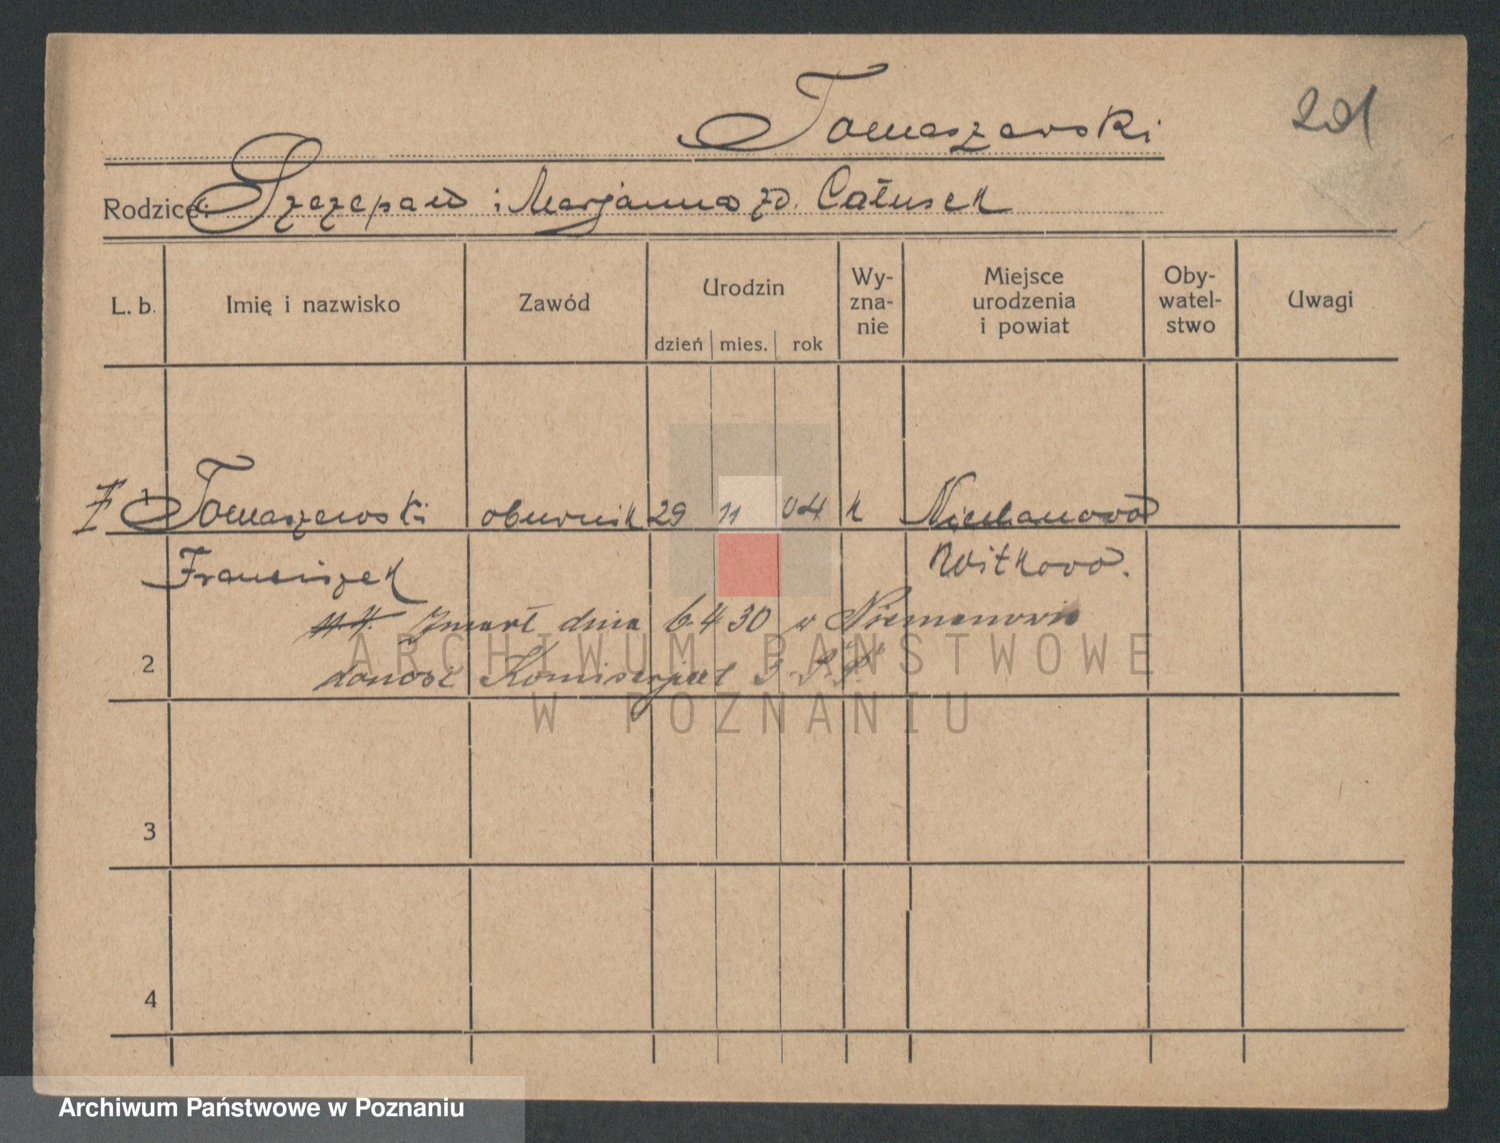 Tomaszewski
201
Rodzice: Szczepan i Marjanna zd. Całusek
L. b.
Imię i nazwisko
Zawód
Urodzin
dzień mies. rok
Wy-
zna-
nie
Miejsce
urodzenia
i powiat
Oby-
watel-
stwo
Uwagi
1 Tomaszewski obuwnik 29 11 04 k Niechanowo
Franciszek Witkowo.
Zmarł dnia 6.4 30 w
2
donosi Komisarjat 3 P.P.
ARCHIWUM PAŃSTWOWE
W POZNANIU
3
4
Archiwum Państwowe w Poznaniu